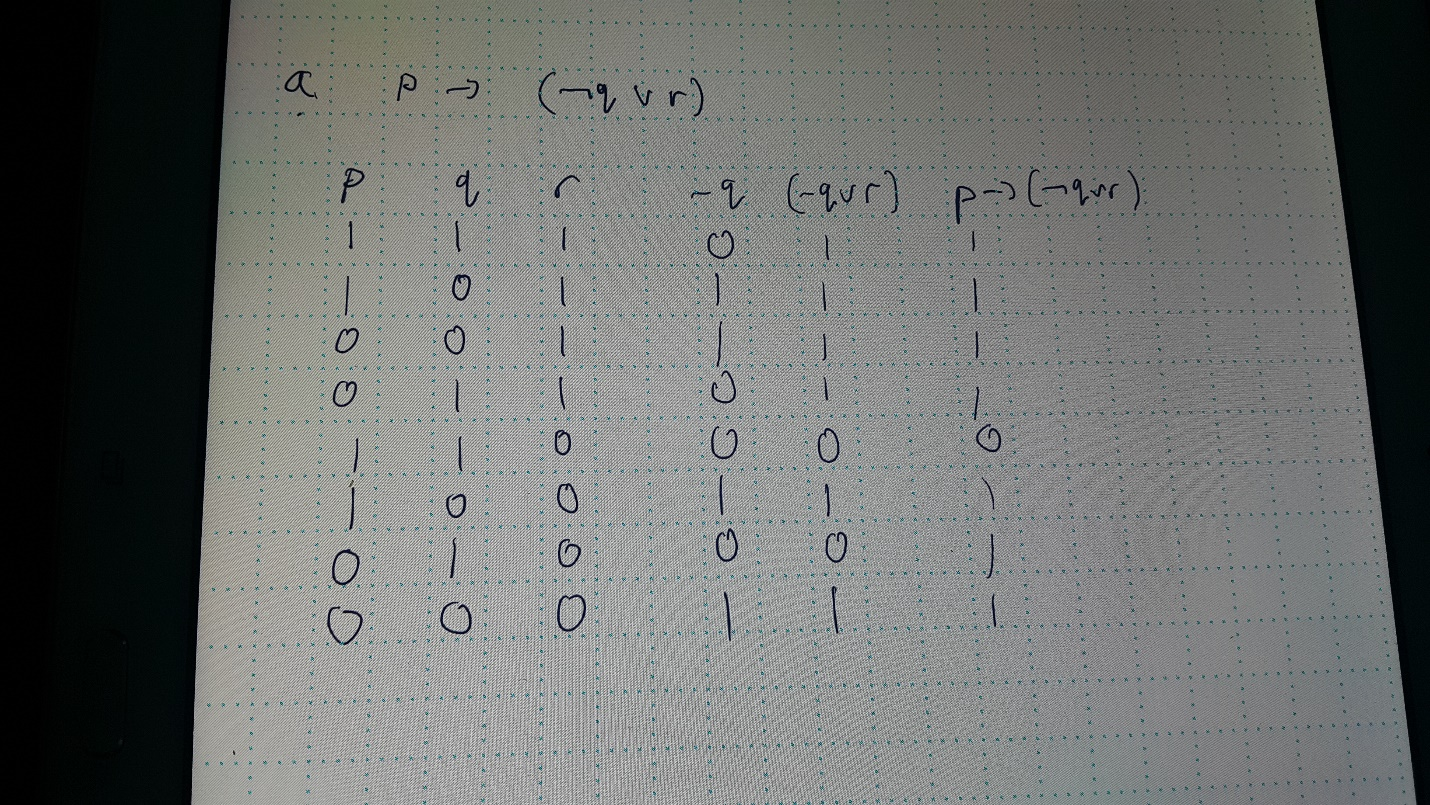 a. p → (¬q ∨ r)
p q r -q (-q∨r) p→(¬q∨r)
1 1 1 0 1 1
1 0 1 1 1 1
0 0 1 1 1 1
0 1 1 0 1 1
1 1 0 0 0 0
1 0 0 1 1 1
0 1 0 0 0 1
0 0 0 1 1 1